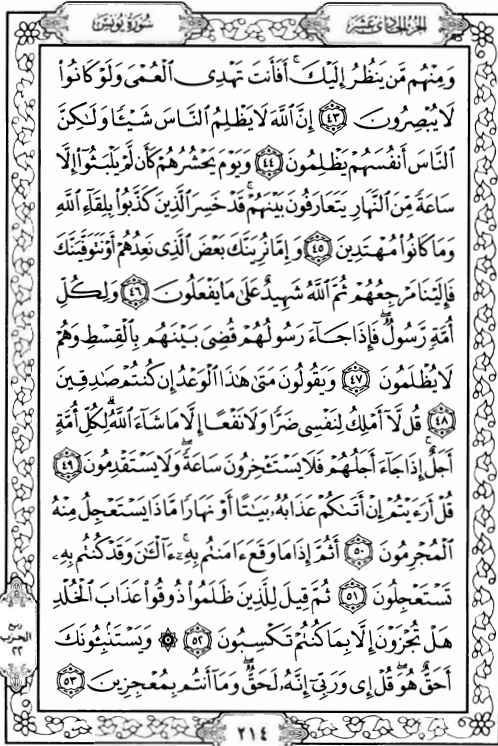 الجزء الحادي عشر
سورة يونس
وَمِنْهُم مَّن يَنظُرُ إِلَيْكَ ۚ أَفَأَنتَ تَهْدِى ٱلْعُمْىَ وَلَوْ كَانُوا۟
لَا يُبْصِرُونَ ﴿٤٣﴾ إِنَّ ٱللَّهَ لَا يَظْلِمُ ٱلنَّاسَ شَيْـًٔا وَلَـٰكِنَّ
ٱلنَّاسَ أَنفُسَهُمْ يَظْلِمُونَ ﴿٤٤﴾ وَيَوْمَ يَحْشُرُهُمْ كَأَن لَّمْ يَلْبَثُوٓا۟ إِلَّا
سَاعَةً مِّنَ ٱلنَّهَارِ يَتَعَارَفُونَ بَيْنَهُمْ ۚ قَدْ خَسِرَ ٱلَّذِينَ كَذَّبُوا۟ بِلِقَآءِ ٱللَّهِ
وَمَا كَانُوا۟ مُهْتَدِينَ ﴿٤٥﴾ وَإِمَّا نُرِيَنَّكَ بَعْضَ ٱلَّذِى نَعِدُهُمْ أَوْ نَتَوَفَّيَنَّكَ
فَإِلَيْنَا مَرْجِعُهُمْ ثُمَّ ٱللَّهُ شَهِيدٌ عَلَىٰ مَا يَفْعَلُونَ ﴿٤٦﴾ وَلِكُلِّ
أُمَّةٍ رَّسُولٌ ۖ فَإِذَا جَآءَ رَسُولُهُمْ قُضِىَ بَيْنَهُم بِٱلْقِسْطِ وَهُمْ
لَا يُظْلَمُونَ ﴿٤٧﴾ وَيَقُولُونَ مَتَىٰ هَـٰذَا ٱلْوَعْدُ إِن كُنتُمْ صَـٰدِقِينَ
﴿٤٨﴾ قُل لَّآ أَمْلِكُ لِنَفْسِى ضَرًّا وَلَا نَفْعًا إِلَّا مَا شَآءَ ٱللَّهُ ۗ لِكُلِّ أُمَّةٍ
أَجَلٌ ۚ إِذَا جَآءَ أَجَلُهُمْ فَلَا يَسْتَـْٔخِرُونَ سَاعَةً ۖ وَلَا يَسْتَقْدِمُونَ ﴿٤٩﴾
قُلْ أَرَءَيْتُمْ إِنْ أَتَىٰكُمْ عَذَابُهُۥ بَيَـٰتًا أَوْ نَهَارًا مَّاذَا يَسْتَعْجِلُ مِنْهُ
ٱلْمُجْرِمُونَ ﴿٥٠﴾ أَثُمَّ إِذَا مَا وَقَعَ ءَامَنتُم بِهِۦٓ ۚ ءَآلْـَٔـٰنَ وَقَدْ كُنتُم بِهِۦ
تَسْتَعْجِلُونَ ﴿٥١﴾ ثُمَّ قِيلَ لِلَّذِينَ ظَلَمُوا۟ ذُوقُوا۟ عَذَابَ ٱلْخُلْدِ
هَلْ تُجْزَوْنَ إِلَّا بِمَا كُنتُمْ تَكْسِبُونَ ﴿٥٢﴾ ۞ وَيَسْتَنۢبِـُٔونَكَ
أَحَقٌّ هُوَ ۖ قُلْ إِى وَرَبِّىٓ إِنَّهُۥ لَحَقٌّ ۖ وَمَآ أَنتُم بِمُعْجِزِينَ ﴿٥٣﴾
ربع
الحزب
٢٢
٢١٤